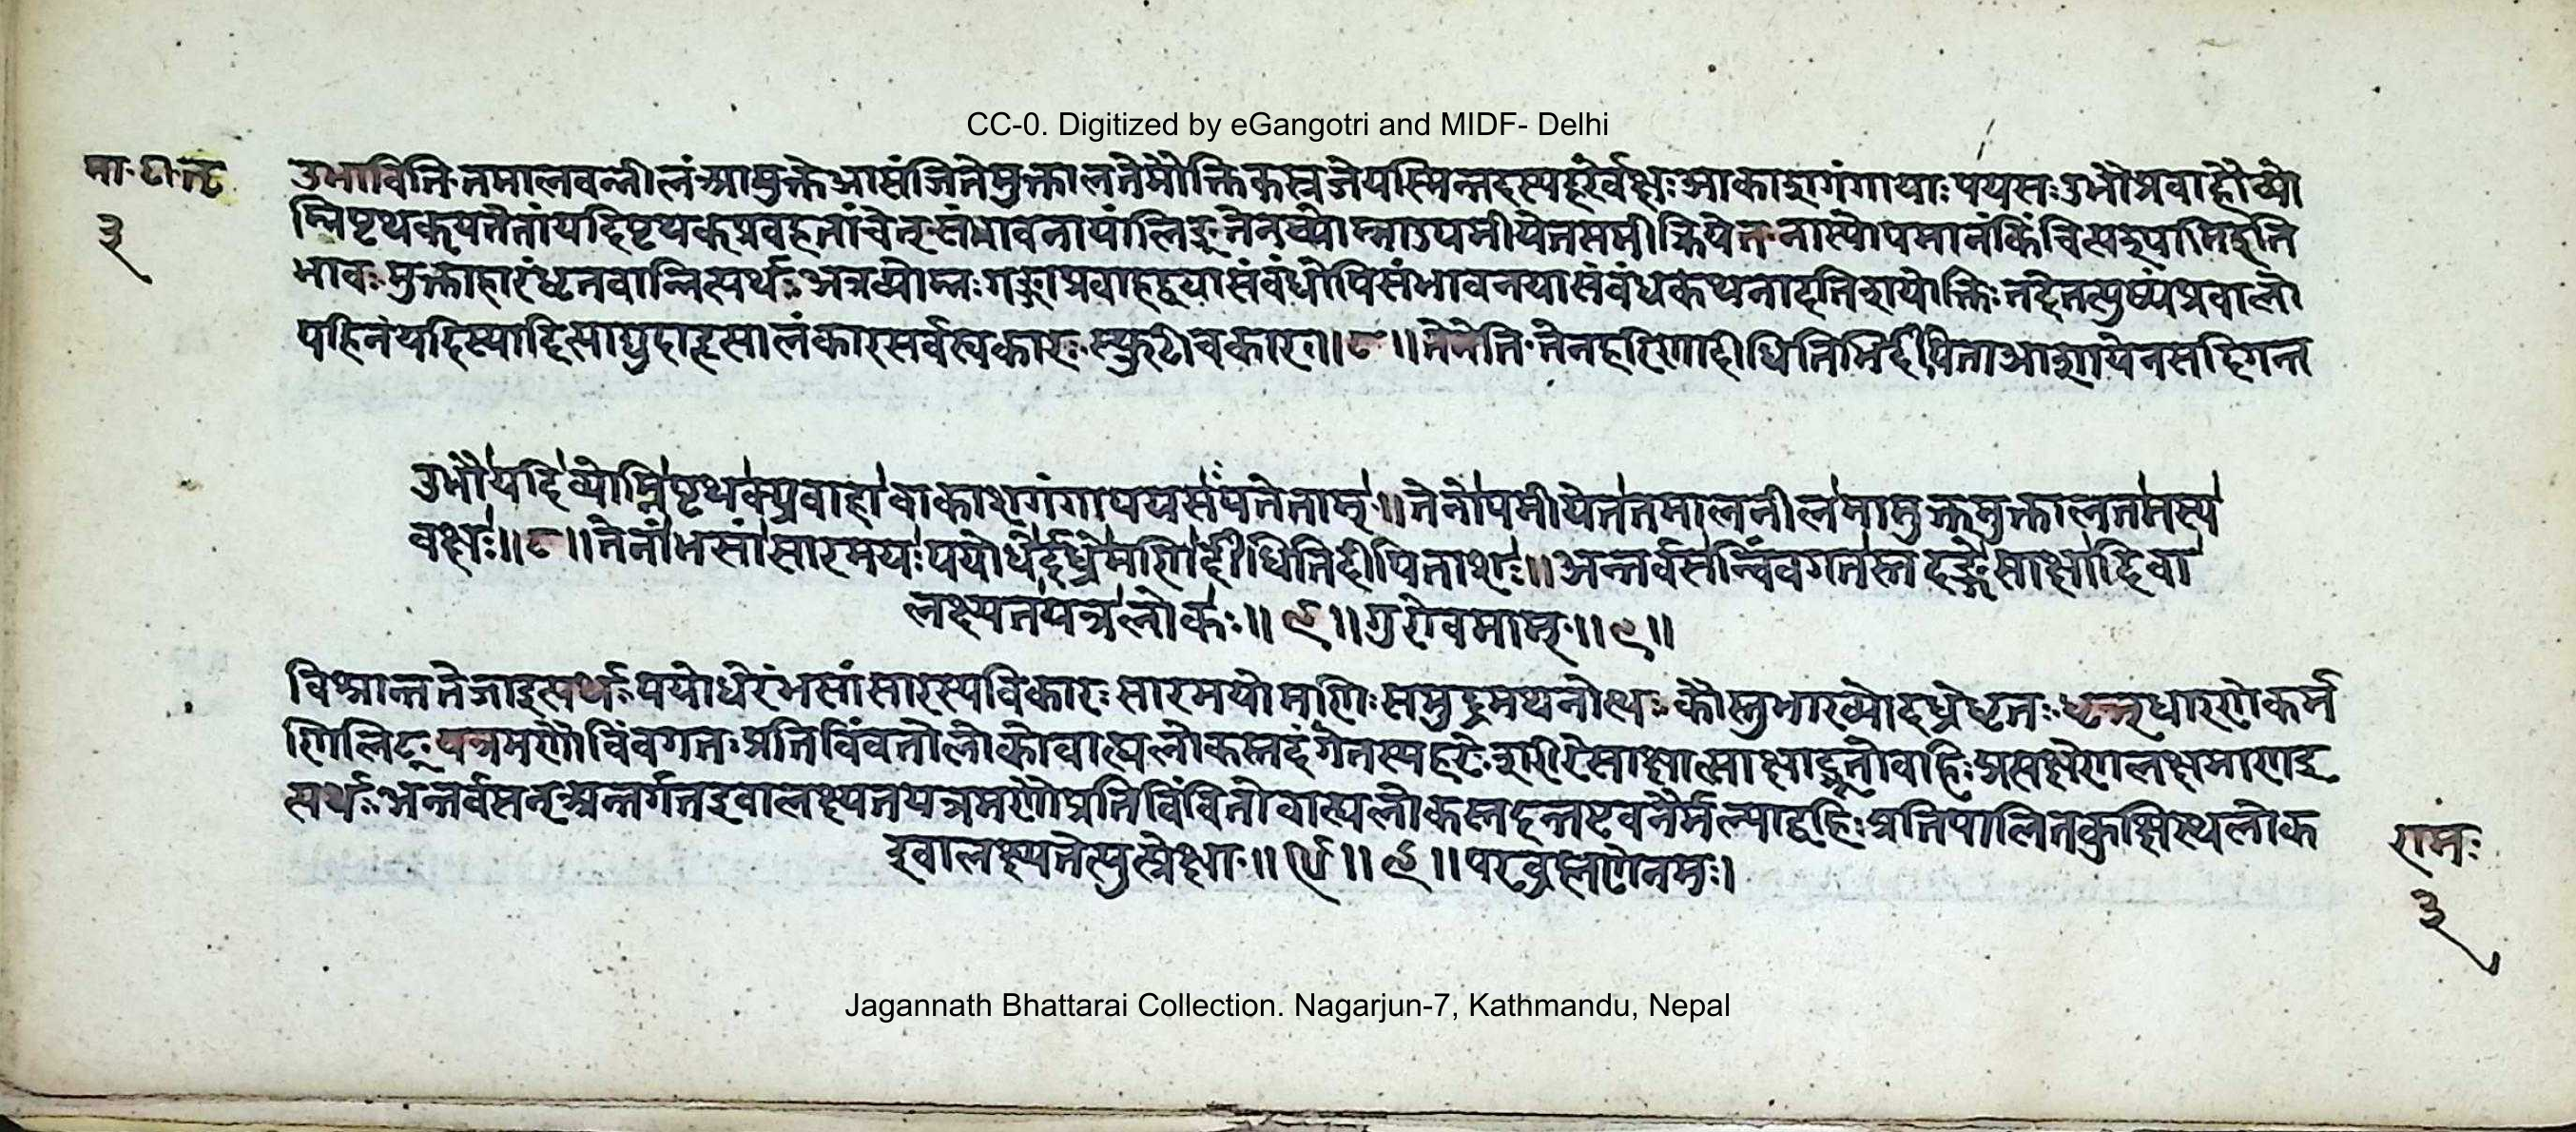 CC-0. Digitized by eGangotri and MIDF- Delhi
मा. टी. तृ
३
उभाविति तमालवन्नीलं आमुक्ते आसंजिते मुक्तालते मौक्तिकस्रजे यस्मिन्तदस्य हरेर्वक्षः आकाशगंगायाः पयसः उभौ प्रवाहौ व्यो
म्निपृथक्पतेतां यदि पृथक्प्रवहतां चेत् संभावनायां लिङ् तेन व्योम्ना उपमीयेत समीक्रियेत नास्योपमानं किंचित्पश्यामि इति
भावः मुक्ताहारं धृतवान्नित्यर्थः अत्र व्योम्नः गङ्गाप्रवाहद्वयासंबंधेपि संभावनया संबंधकथनादतिशयोक्तिः तदेतत्पुष्पं प्रवालो
पहितं यदि स्यादित्याद्युदाहृत्सालंकारसर्वस्वकारः स्फुटीचकार ॥८॥ तेनेति तेन हरिणा दीधितिभिर्दीपिता आशा येन स दिगन्त
उभौ यदि व्योम्नि पृथक्प्रवाहावाकाशगंगापयसः पतेताम् ॥ तेनोपमीयेत तमालनीलमामुक्तमुक्तालतमस्य
वक्षः ॥८॥ तेनांभसां सारमयः पयोधेर्दध्रे मणिर्दीधितिदीपिताशः ॥ अन्तर्वसन्बिंबगतस्तदङ्गे साक्षादिवा
लक्ष्यत यत्र लोकः ॥९॥ गुरोवमाम् ॥९॥
विश्रान्ततेजा इत्यर्थः पयोधेरंभसां सारस्य विकारः सारमयो मणिः समुद्रमथनोत्थः कौस्तुभाख्यो दध्रे धृतः धृञ् धारणे कर्म
णि लिट् यत्र मणौ बिंबगतः प्रतिबिंबतो लोको बाह्यलोकस्तदंगे तस्य हरेः शरीरे साक्षात्साक्षाद्भूतो बहिः प्रत्यक्षेण लक्षमाण इ
त्यर्थः अन्तर्वसन् अन्तर्गत इवालक्ष्यत यत्र मणौ प्रतिबिंबितो बाह्यलोकस्तदन्तरेव नैर्मल्याद्बहिः प्रतिपालितकुक्षिस्थलोक
इवालक्ष्यतेत्युत्प्रेक्षा ॥९॥९॥ परब्रह्मणे नमः।
रामः
३
Jagannath Bhattarai Collection. Nagarjun-7, Kathmandu, Nepal